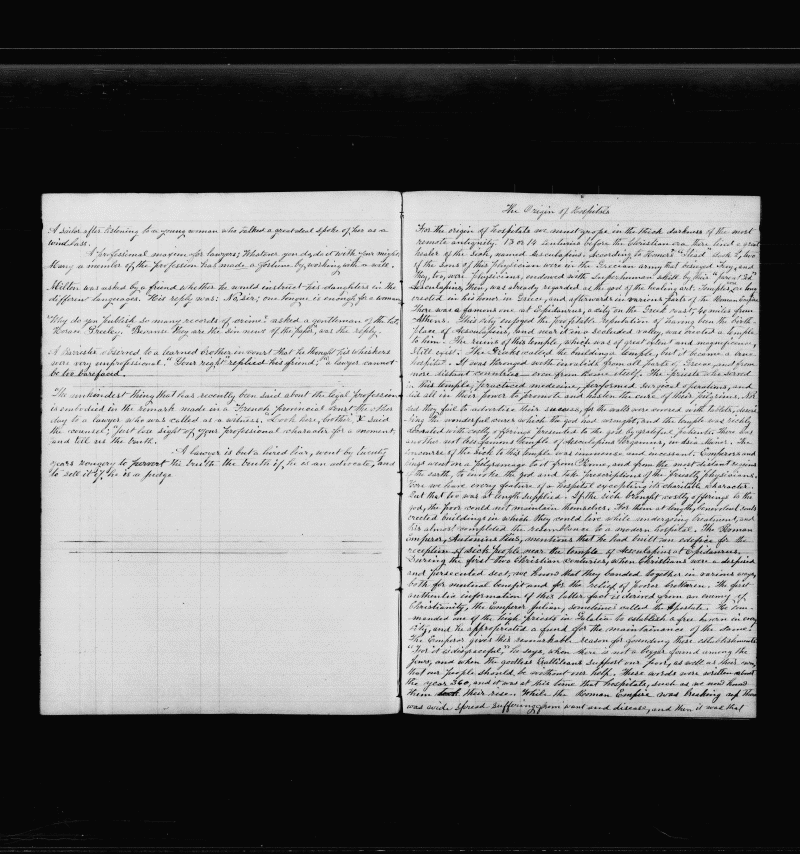 A Sailor after listening to a young woman who talked a great deal spoke of her as a
wind lass.
A professional maxim for lawyers; Whatever you do, do it with your might,
Many a member of the profession has made a fortune by working with a will.
Milton was asked by a friend whether he would instruct his daughters in the
different languages. His reply was: No, sir; one tongue is enough for a woman
Why do you publish so many records of crime? asked a gentleman of the late
Horace Greeley. "Because they are the sin news of the paper," was the reply.
A Barrister observed to a learned brother in court that he thought his whiskers
were very unprofessional. "Your right" replied his friend, "a lawyer cannot
be too barefaced.
The unkindest thing that has recently been said about the legal profession
is embodied in the remark made in a French provincial court the other
day to a lawyer who was called as a witness. Look here, brother X said
the counsel, Just lose sight of your professional character for a moment,
and tell us the truth.
A lawyer is but a hired liar, wont by twenty
years roguery to pervert the truth. the truth if he is an advocate, and
to sell it if he is a judge
The Origin of Hospitals
For the origin of hospitals we must grope in the thick darkness of the most
remote antiquity. 13 or 14 centuries before the Christian era there lived a great
healer of the sick, named Aesculapius. According to Homer's "Iliad" Book 2, two
of the sons of this physician were in the Grecian army that besieged Troy, and
they, too, were physicians, endowed with superhuman skill by their
Aesculapius, then, was already regarded as the god of the healing art. Temples were
erected in his honor in Greece, and afterwards in various parts of the Roman Empire
There was a famous one at Epidaurus, a city on the Greek coast, 40 miles from
Athens. This city enjoyed the profitable reputation of having been the birth-
place of Aesculapius, and near it in a secluded valley, was erected a temple
to him. The ruins of this temple, which was of great extent and magnificence,
still exist. The Greeks called the building a temple, but it became a true
hospital. It was thronged with invalids from all parts of Greece and from
more distant countries – even from Rome itself. The priests who served
in this temple, practiced medicine, performed surgical operations, and
did all in their power to promote and hasten the cure of their pilgrims. Nor
did they fail to advertise their success, for the walls were covered with tablets, descri-
bing the wonderful cures which the god had wrought, and the temple was richly
decorated with costly offerings presented to the god by grateful patients. There was
another not less famous temple of Aesculapius at Pergamus, in Asia Minor. The
concourse of the sick to this temple was immense and incessant. Emperors and
kings went on a pilgrimage to it from Rome, and from the most distant regions
the earth, to invoke the god and take prescriptions of the priestly physicians.
Here we have every feature of a hospital excepting its charitable character.
But that too was at length supplied. If the rich brought costly offerings to the
god, the poor could not maintain themselves. For them at length, benevolent souls
erected buildings in which they could live while undergoing treatment, and
this almost completed the resemblance to a modern hospital. The Roman
Emperor, Antoninus Pius, mentions that he had built an edifice for the
reception of sick people near the temple of Aesculapius at Epidaurus.
During the first two Christian centuries, when Christians were a despised
and persecuted sect, we know that they banded together in various ways
both for mutual benefit and for the relief of poorer brethren. The first
authentic information of this latter fact is derived from an enemy of
Christianity, the Emperor Julian, sometimes called the Apostate. He com-
manded one of the high priests in Galatia to establish a free home in every
city, and he appropriated a fund for the maintainance of the same.
The Emperor gives this remarkable reason for founding these establishments
"For it is disgraceful," he says, when there is not a beggar found among the
Jews, and when the godless Galileans support our poor, as well as their own,
that our people should be without our help. These words were written about
the year 360, and it was at this time that hospitals, such as we now have
them had their rise. While the Roman Empire was breaking up there
was wide spread suffering from want and disease, and then it was that